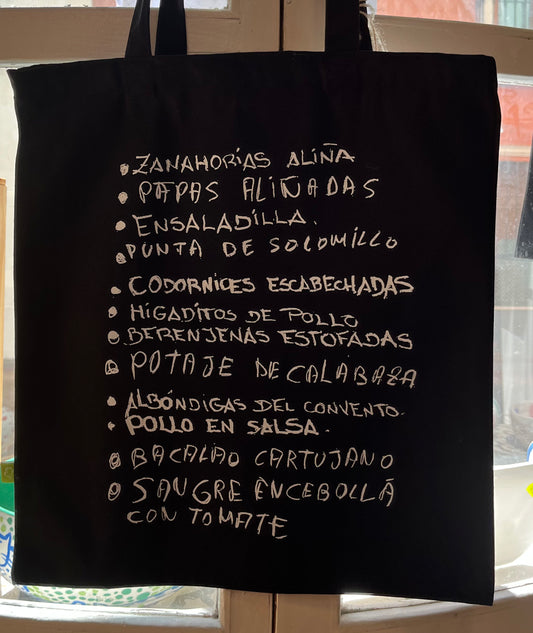 • ZANAHORIAS ALIÑA
• PAPAS ALIÑADAS
• ENSALADILLA.
• PUNTA DE SOLOMILLO
• CODORNICES ESCABECHADAS
• HIGADITOS DE POLLO
• BERENJENAS ESTOFADAS
• POTAJE DE CALABAZA
• ALBÓNDIGAS DEL CONVENTO.
• POLLO EN SALSA.
• BACALAO CARTUJANO
• SANGRE ENCEBOLLÁ
CON TOMATE